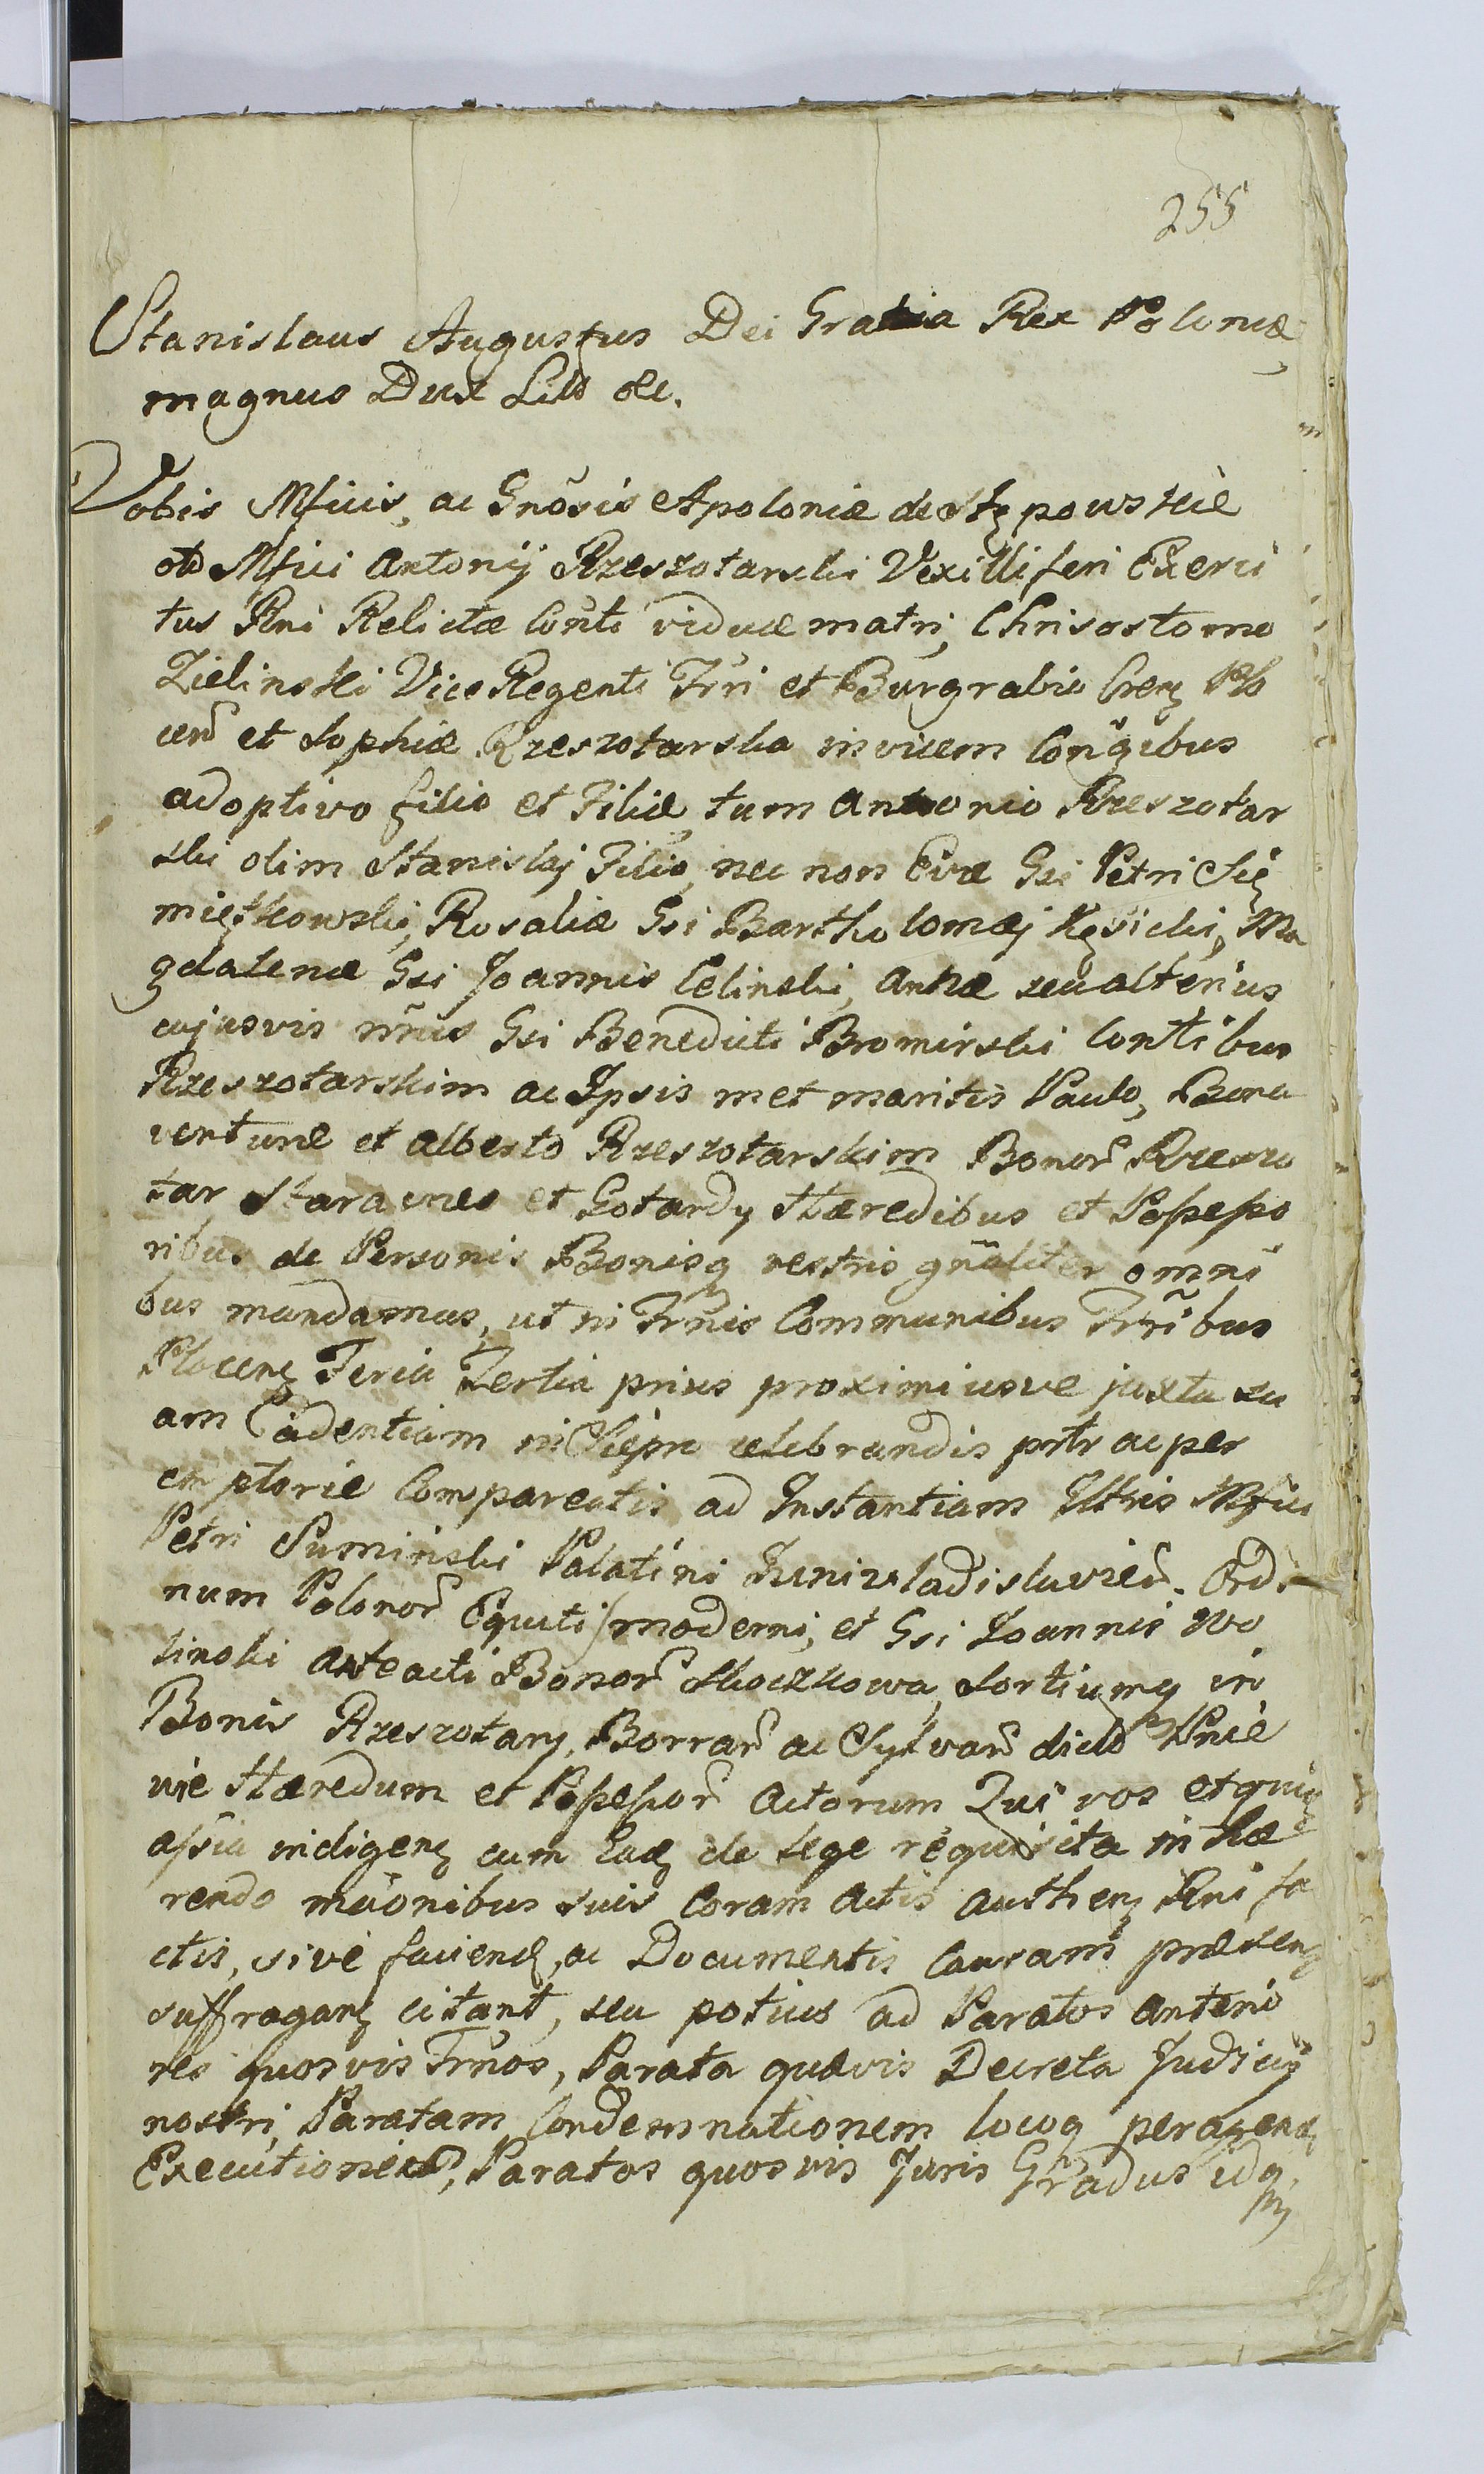 255
Stanislaus Augustus Dei Gratia Rex Poloniæ
magnus Dux Litt &c.
Vobis Mficis, ac Gnõsis Apoloniæ de Stępowskie
olim Mfici Antonij Rzeszotarski Vexilliferi Exerci
tus Rni Relictæ Consti viduæ matri, Chrisostomo
Zielinski Vice Regenti Trri et Burgrabio Cren Plo
cen et Sophiæ Rzeszotarska invicem Conjgibus
adoptivo filio et Filiæ, tum Antonio Rzeszotar
ski olim Stanislaj Filio, nec non Evæ Gsi Petri Sie
miątkowski, Rosaliæ Gsi Bartholomæj Kęsicki, Ma
gdalenæ Gsi Joannis Celinski, Annæ seu alterius
cujusvis nñis Gsi Benedicti Bromirski Contibus
Rzeszotarskim ac Ipsis met maritis Paulo, Bona
venturæ et Alberto Rzeszotarskim Bonor Rzeszo
tar Stara wies et Gotardy Hæredibus et Possesso
ribus de Personis Bonisq vestris gnãliter omni
bus mandamus, ut in Trñis Communibus Trribus
Plocen Feria Tertia prius proximiusve juxta su
am Cadentiam in Sierpc celebrandis prtr ac per
emptorie Compareatis ad Instantiam Illtris Mfici
Petri Sumiński Palatini Juniwladislavien. Ordi
num Polonor Equitis moderni, et Gsi Joannis Wo
linski Anteacti Bonor Skoczkowa, Sortiumq in
Bonis Rzeszotary, Borrar ac Sylvar dict Pnie
wie Hæredum et Possessor Actorum Qui vos et quia
assia indigen cum Ead de lege requisita in hæ
rendo mãonibus suis Coram Actis Authen Rni fa
ctis, sive faciend, ac Documentis Causam præsen
suffragan citant, seu potius ad Paratos Anterio
res quosvis Trños, Parata quævis Decreta Judicij
nostri, Paratam Condemnationem locoq peragend
Executionis, Paratos quosvis Juris Gradus idq